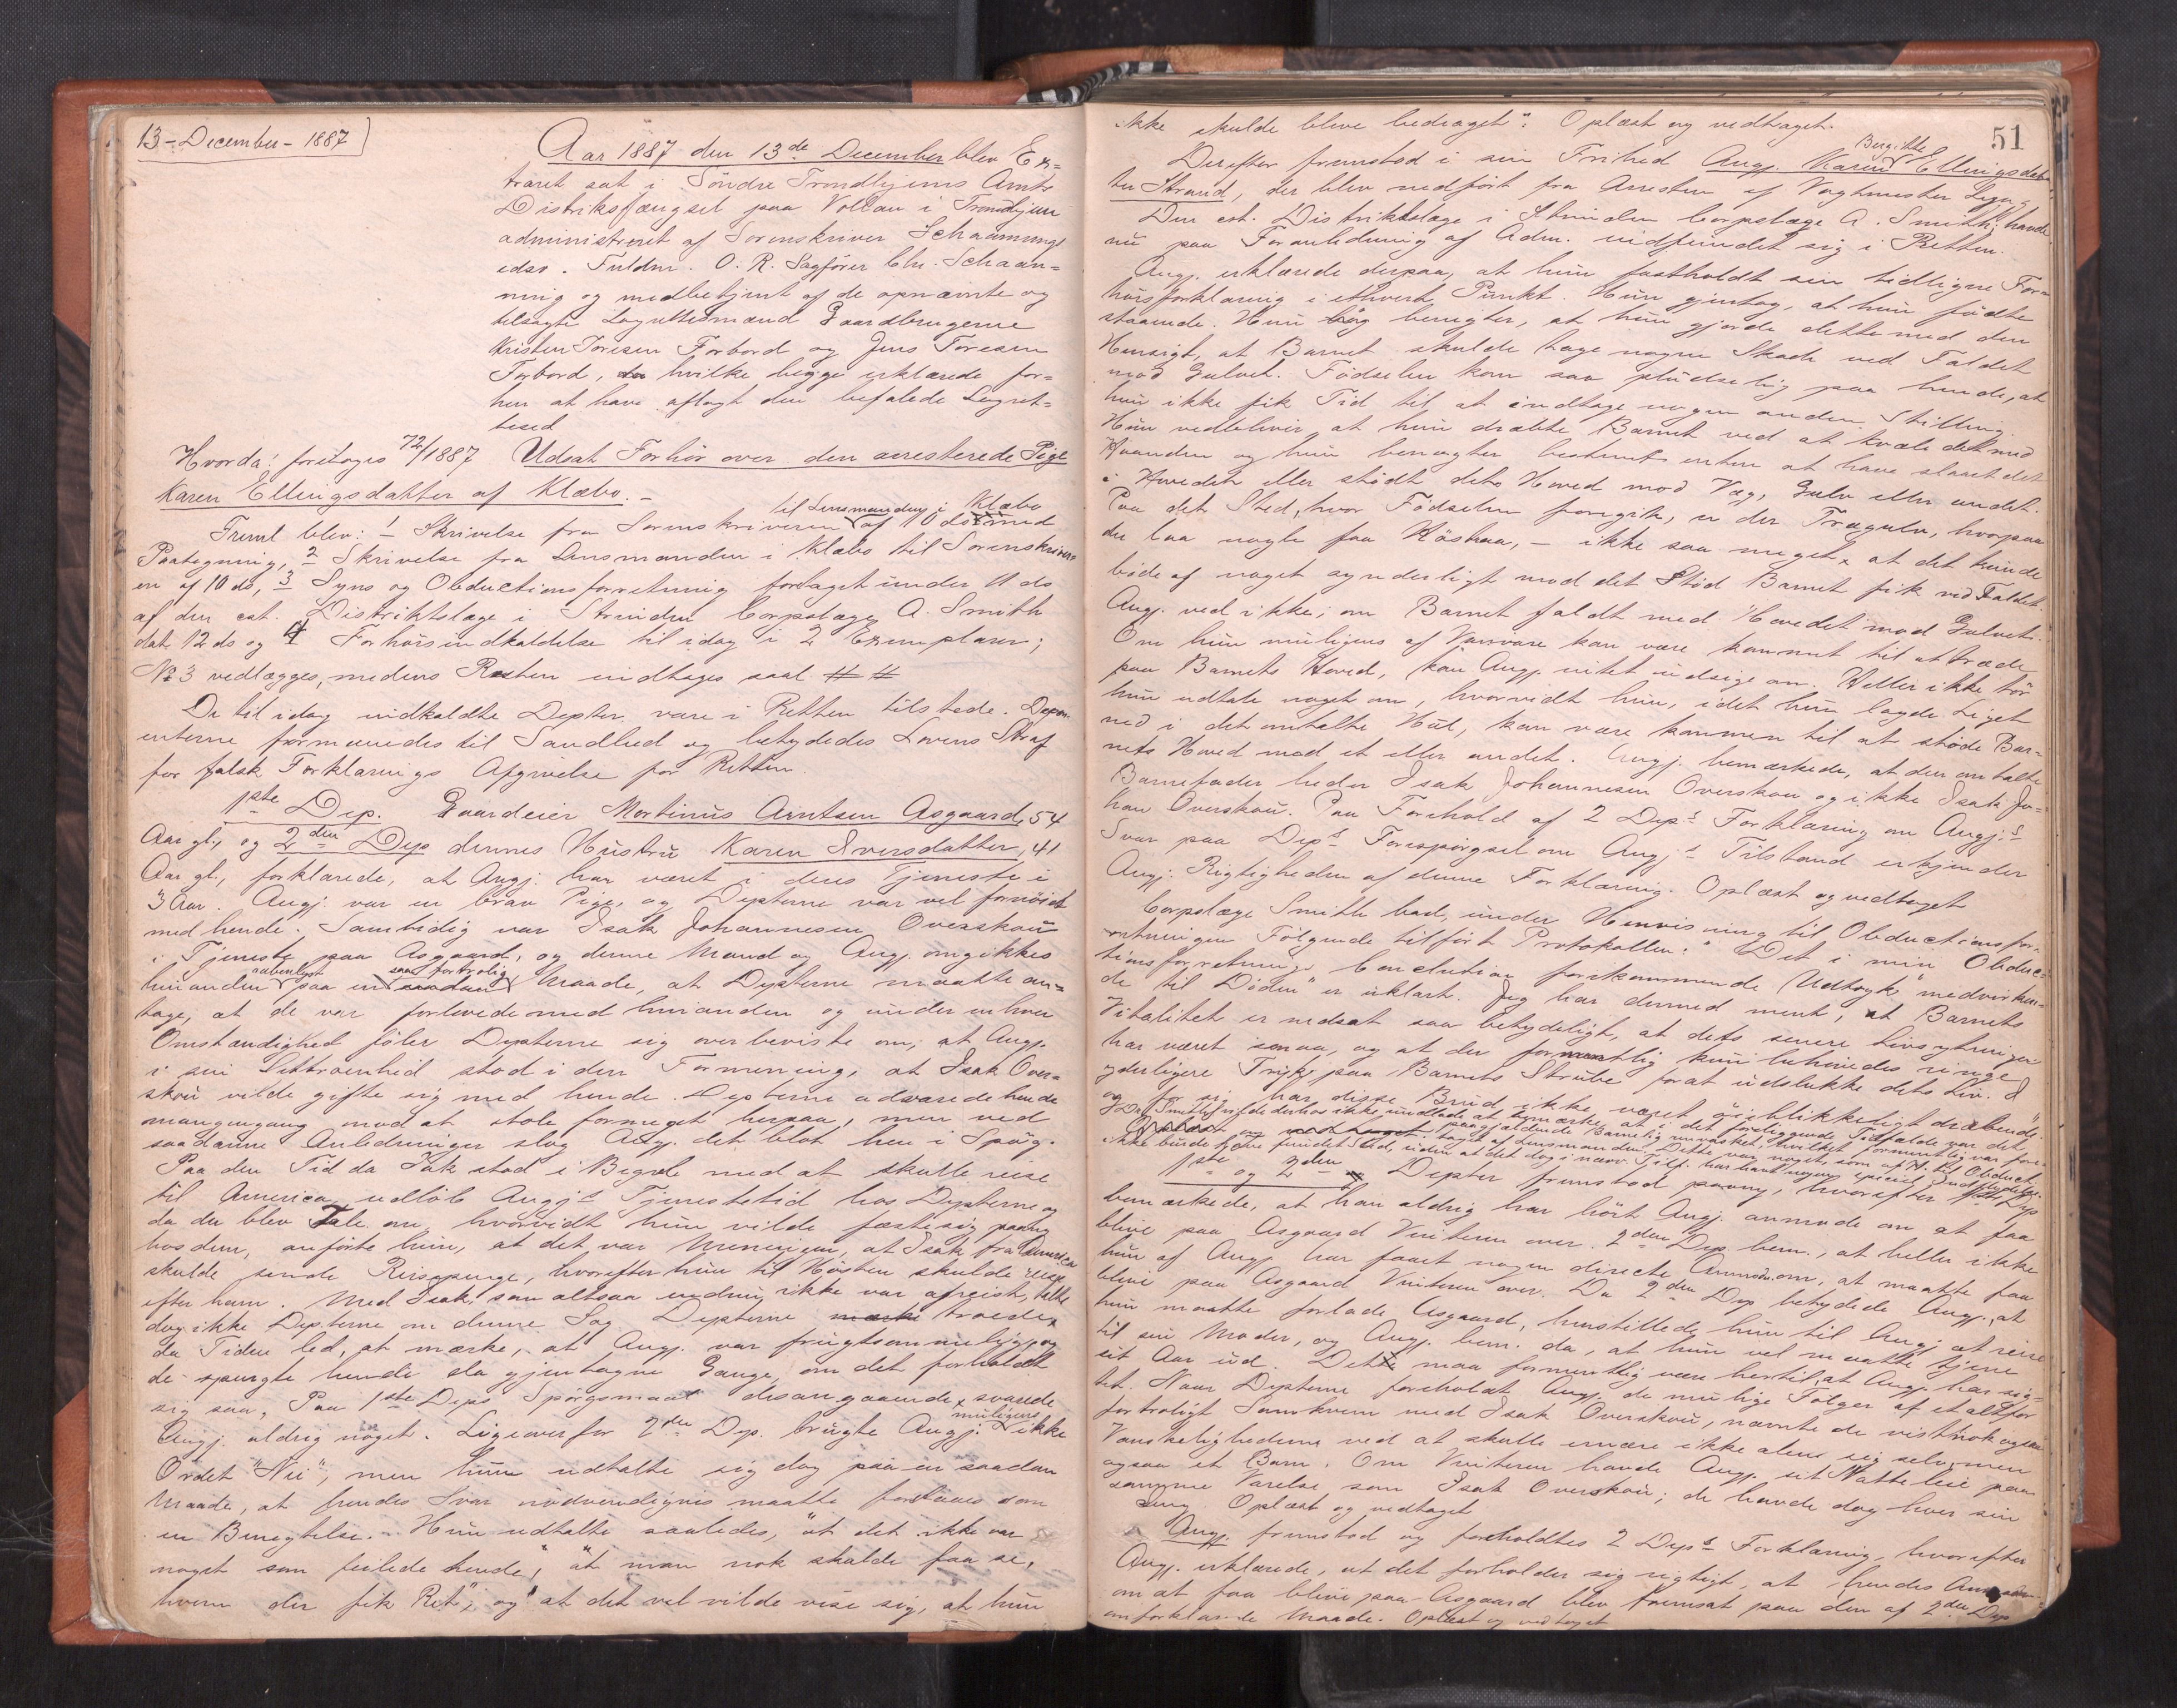 13-December-1887
Aar 1887 den 13de December blev Ex-
traret sat i Söndre Trondhjems Amts
Distriksfængsel paa Vollan i Trondhjem
administreret af Sorenskriver Schaannings
edsv. Fuldm. O. R. Sagfører Chr. Schaan=
ning og medbetjent af de opnævnte og
tilsagte Lagrettesmænd Gaardbrugerne
Kristen Toresen Forbord og Jens Toresen
Forbord, hvilke begge erklærede for=
hen at have aflagt den befalede Lagret=
tesed
Hvorda: foretoges 72/1887 Udsat Forhör over den arresterede Pige
Karen Ellingsdatter af Klæbo.-
Freml blev: 1 Skrivelse fra Sorenskriveren til Lensmanden i Klæbo af 10 ds med
Paategning, 2 Skrivelse fra Lensmanden i Klæbo til Sorenskriver
en af 10 ds, 3 Syns og Obductionsforretning foretaget under 11 ds
af den cst. Distriktslæge i Strinden Corpslæge A. Smith
dat. 12 ds og 4 Forhörsindkaldelse til idag i 2 Exemplarer;
No 3 vedlægges, medens Resten indtages saal. # #
De til idag indkaldte Depter vare i Retten tilstede. Depon-
enterne formanedes til Sandhed og betydedes Lovens Straf
for falsk Forklarings Afgivelse for Retten.
1ste Dep. Gaardeier Martinus Arntsen Asgaard, 54
Aar gl., og 2den Dep dennes Hustru Karen Iversdatter, 41
Aar gl., forklarede, at Angj. har været i deres Tjeneste i
3 Aar. Angj. var en brav Pige, og Depterne var vel fornöiet
med hende. Samtidig var Isak Johannesen Overskau
i Tjeneste paa Asgaard, og denne Mand og Angj. omgikkes
hinanden aabenlyst paa en saa fortrolig Maade, at Depterne maatte an=
tage, at de var forlovede med hinanden og under enhver
Omstændighed föler Depterne sig overbeviste om, at Angj.
i sin Lettroenhed stod i den Formening, at Isak Over=
skau vilde gifte sig med hende. Depterne advarede hende
mangengang mod at stole formeget herpaa, men ved
saadanne Anledninger slog Angj. det blot hen i Spög.
Paa den Tid da Isak stod i Begreb med at skulle reise
til America, udlöb Angj.s Tjenestetid hos Depterne og
da der blev Tale om, hvorvidt hun vilde fæste sig paany
hos dem, anförte hun, at det var Meningen, at Isak fra America
skulde sende Reisepenge, hvorefter hun til Hösten skulde reise
efter ham. Med Isak, som altsaa endnu ikke var afreist, talte
dog ikke Depterne om denne Sag. Depterne troede,
da Tiden led, at mærke, at Angj. var frugtsommelig, og
de spurgte hende da gjentagne Gange, om det forholdt
sig saa. Paa 1ste Deps Spörgsmaal desangaaende svarede
Angj. aldrig noget. Ligeoverfor 2den Dep. brugte Angj. muligens ikke
Ordet "Nei", men hun udtalte sig dog paa en saadan
Maade, at hendes Svar nödvendigvis maatte forstaaes som
en Benegtelse. Hun udtalte saaledes, "at det ikke var
noget som feilede hende", "at man nok skulde faa se,
hvem der fik Ret", og "at det vel vilde vise sig, at hun
51
ikke skulde blive bedraget". Oplæst og vedtaget.
Derefter fremstod i sin Frihed Angj. Karen Bergitte Ellingsdat-
ter Strand, der blev nedfört fra Arresten af Vagtmester Lyng.
Den cst. Distriktslæge i Strinden Corpslæge A. Smith havde
nu paa Foranledning af Adm. indfundet sig i Retten.
Angj. erklærede derpaa, at hun fastholdt sin tidligere For=
hörsforklaring i ethvert Punkt. Hun gjentog, at hun födte
staaende. Hun benegter, at hun gjorde dette med den
Hensigt, at Barnet skulde tage nogen Skade ved Faldet
mod Gulvet. Födselen kom saa pludselig paa hende, at
hun ikke fik Tid til at indtage nogen anden Stilling.
Hun vedbliver, at hun dræbte Barnet ved at kvæle det med
Haanden og hun benegter bestemt enten at have slaaet det
i Hovedet eller stödt dets Hoved mod Væg, Gulv eller andet.
Paa det Sted, hvor Födselen foregik, er der Trægulv, hvorpaa
der laa nogle faa Höstraa, - ikke saa meget, at det kunde
böde af noget synderligt mod det Stöd Barnet fik ved Faldet.
Angj. ved ikke, om Barnet faldt med Hovedet mod Gulvet.
Om hun muligens af Vanvare kan være kommet til at træde
paa Barnets Hoved, kan Angj. intet udsige om. Heller ikke tör
hun udtale noget om, hvorvidt hun, idet hun lagde Liget
ned i det omtalte Hul, kan være kommen til at stöde Bar=
nets Hoved mod et eller andet. Angj. bemærkede, at den omtalte
Barnefader heder Isak Johannesen Overskau og ikke Isak Jo=
han Overskau. Paa Forehold af 2 Deps Forklaring om Angj.s
Svar paa Deps Forespörgsel om Angj.s Tilstand erkjender
Angj. Rigtigheden af denne Forklaring. Oplæst og vedtaget
Corpslæge Smith bad, under Henvisning til Obductionsfor-
retningen Fölgende tilfört Protokollen: "Det i min Obduc=
tionsforretnings Conclution forekommende Udtryk "medvirken-
de til Döden" er uklart. Jeg har dermed ment, at Barnets
Vitalitet er nedsat saa betydeligt, at dets senere Livsytringer
har været smaa, og at der formentlig kun behövedes ringe
yderligere Tryk paa Barnets Strube for at udslukke dets Liv. I
og for sig har disse Brud ikke været öieblikkeligt dræbende".
Dr. Smith fandt derhos ikke undlade at bemærke, at i det foreliggende Tilfælde var det
paagjældende Barnelig uvasket, hvilket formentlig var fore-
taget af Lensmanden. Dette var noget, som af H. til Obduct.
ikke burde have fundet Sted, uden at det dog i nærv. Tilf. har havt nogen speciel Indflydelse.
1ste og 2den Depter fremstod paany, hvorefter 1ste Dep
bemærkede, at han aldrig har hört Angj. anmode om at faa
blive paa Asgaard Vinteren over. 2den Dep. bem., at heller ikke
hun af Angj. har faaet nogen directe Anmodn. om, at maatte faa
blive paa Asgaard Vinteren over. Da 2den Dep betydede Angj., at
hun maatte forlade Asgaard, henstillede hun til Angj. at reise
til sin Moder, og Angj. bem. da, at hun vel maatte tjene
sit Aar ud. Dette maa formentlig være hertil, at Angj. har sig-
tet. Naar Depterne foreholdt Angj. de mulige Fölger af et altfor
fortroligt Samkvem med Isak Overskau, nævnte de vistnok ogsaa
Vanskelighederne ved at skulle ernære ikke alene sig selv, men
ogsaa et Barn. Om Vinteren havde Angj. sit Natteleie paa
samme Værelse som Isak Overskau; de havde dog hver sin
Seng. Oplæst og vedtaget
Angj. fremstod og foreholdtes 2 Deps Forklaring, hvorefter
Angj. erklærede, at det forholder sig rigtigt, at hendes Anmodn.
om at faa blive paa Asgaard blev fremsat paa den af 2den Dep
omforklarede Maade. Oplæst og vedtaget